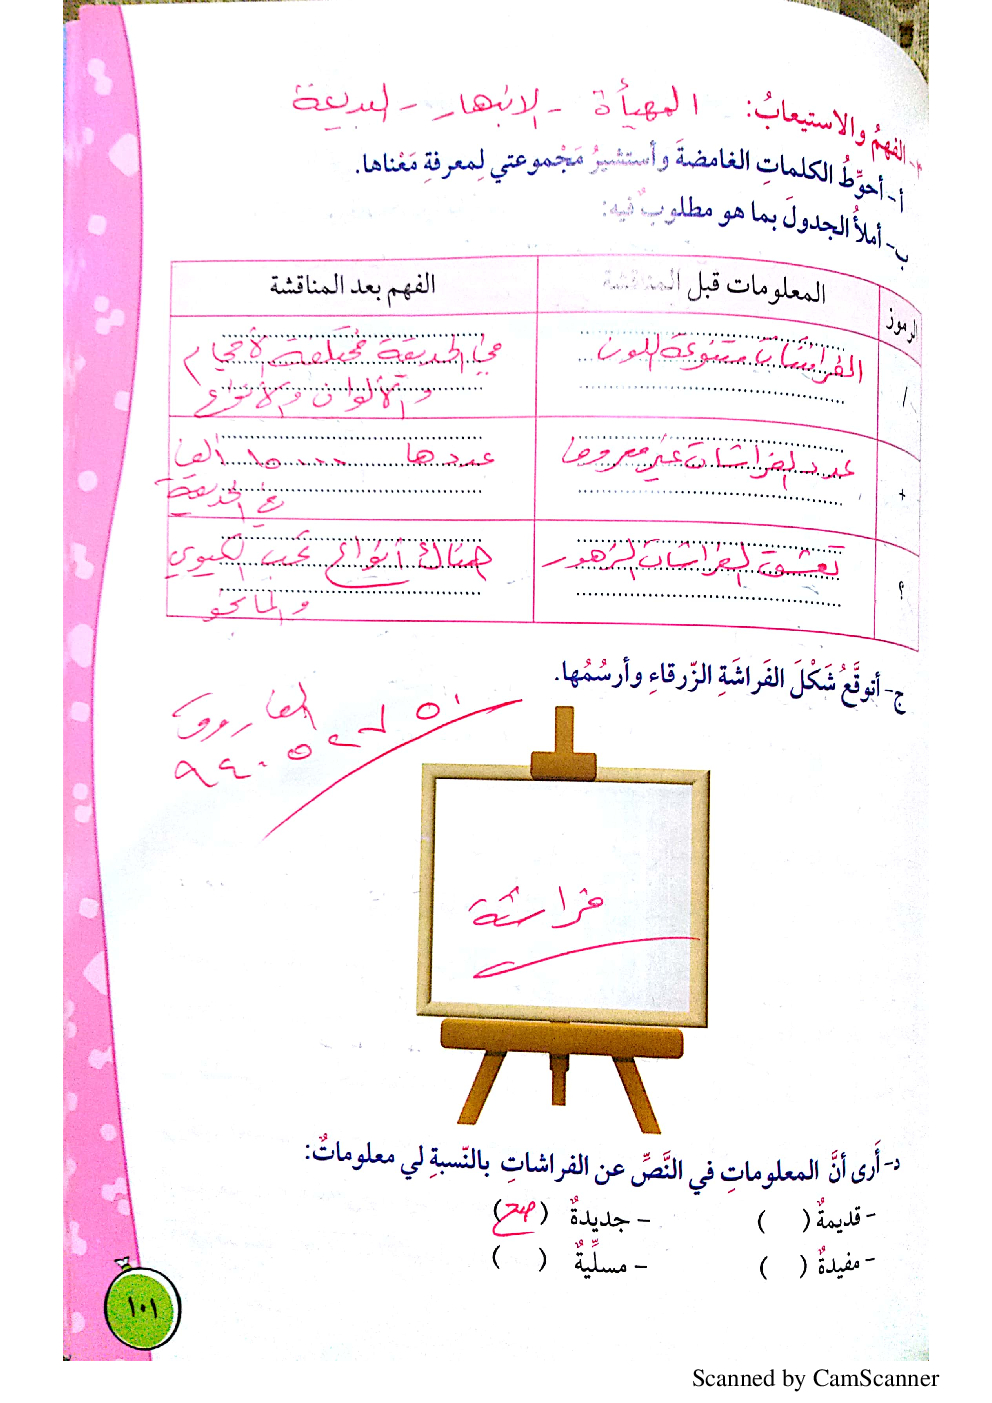 ٣- الفهمُ والاستيعابُ: المهيأة - الانبهار - البديعة
أ- أحوِّطُ الكلماتِ الغامضةَ وأستشيرُ مَجْموعتي لِمعرفةِ مَعْناها.
ب- أملأُ الجدولَ بما هو مطلوبٌ فيه:
الرموز المعلومات قبل المناقشة الفهم بعد المناقشة
/ الفراشات متنوعة اللون في الحديقة مختلفة الأحجام
والألوان والأنواع
+ عدد الفراشات غير معروف عددها ١٥٠٠٠ الفا
في الحديقة
؟ تعشق الفراشات الزهور هناك أنواع تحب الكيوي
والمانجو
ج- أتوقَّعُ شَكْلَ الفَراشَةِ الزّرقاءِ وأرسُمُها.
الفاروق
فراشة
د- أَرى أنَّ المعلوماتِ في النَّصِّ عن الفراشاتِ بالنّسبةِ لي معلوماتٌ:
- قديمةٌ ( ) - جديدةٌ (صح)
- مفيدةٌ ( ) - مسلِّيةٌ ( )
١٠١
Scanned by CamScanner